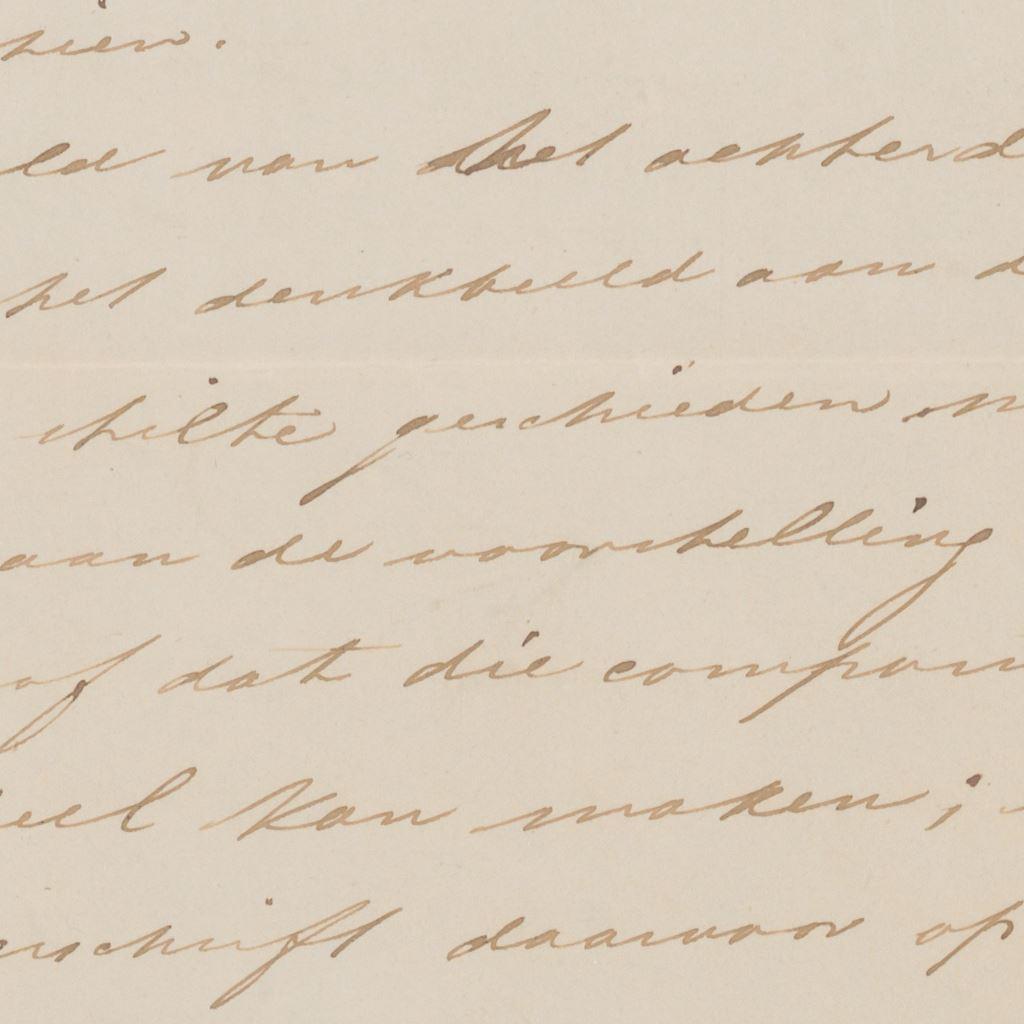 zien.
ld van het achterd
het denkbeeld aan d
stilte geschieden m
aan de voorstelling
of dat die compon
eel kan maken;
erschrift daarvoor op